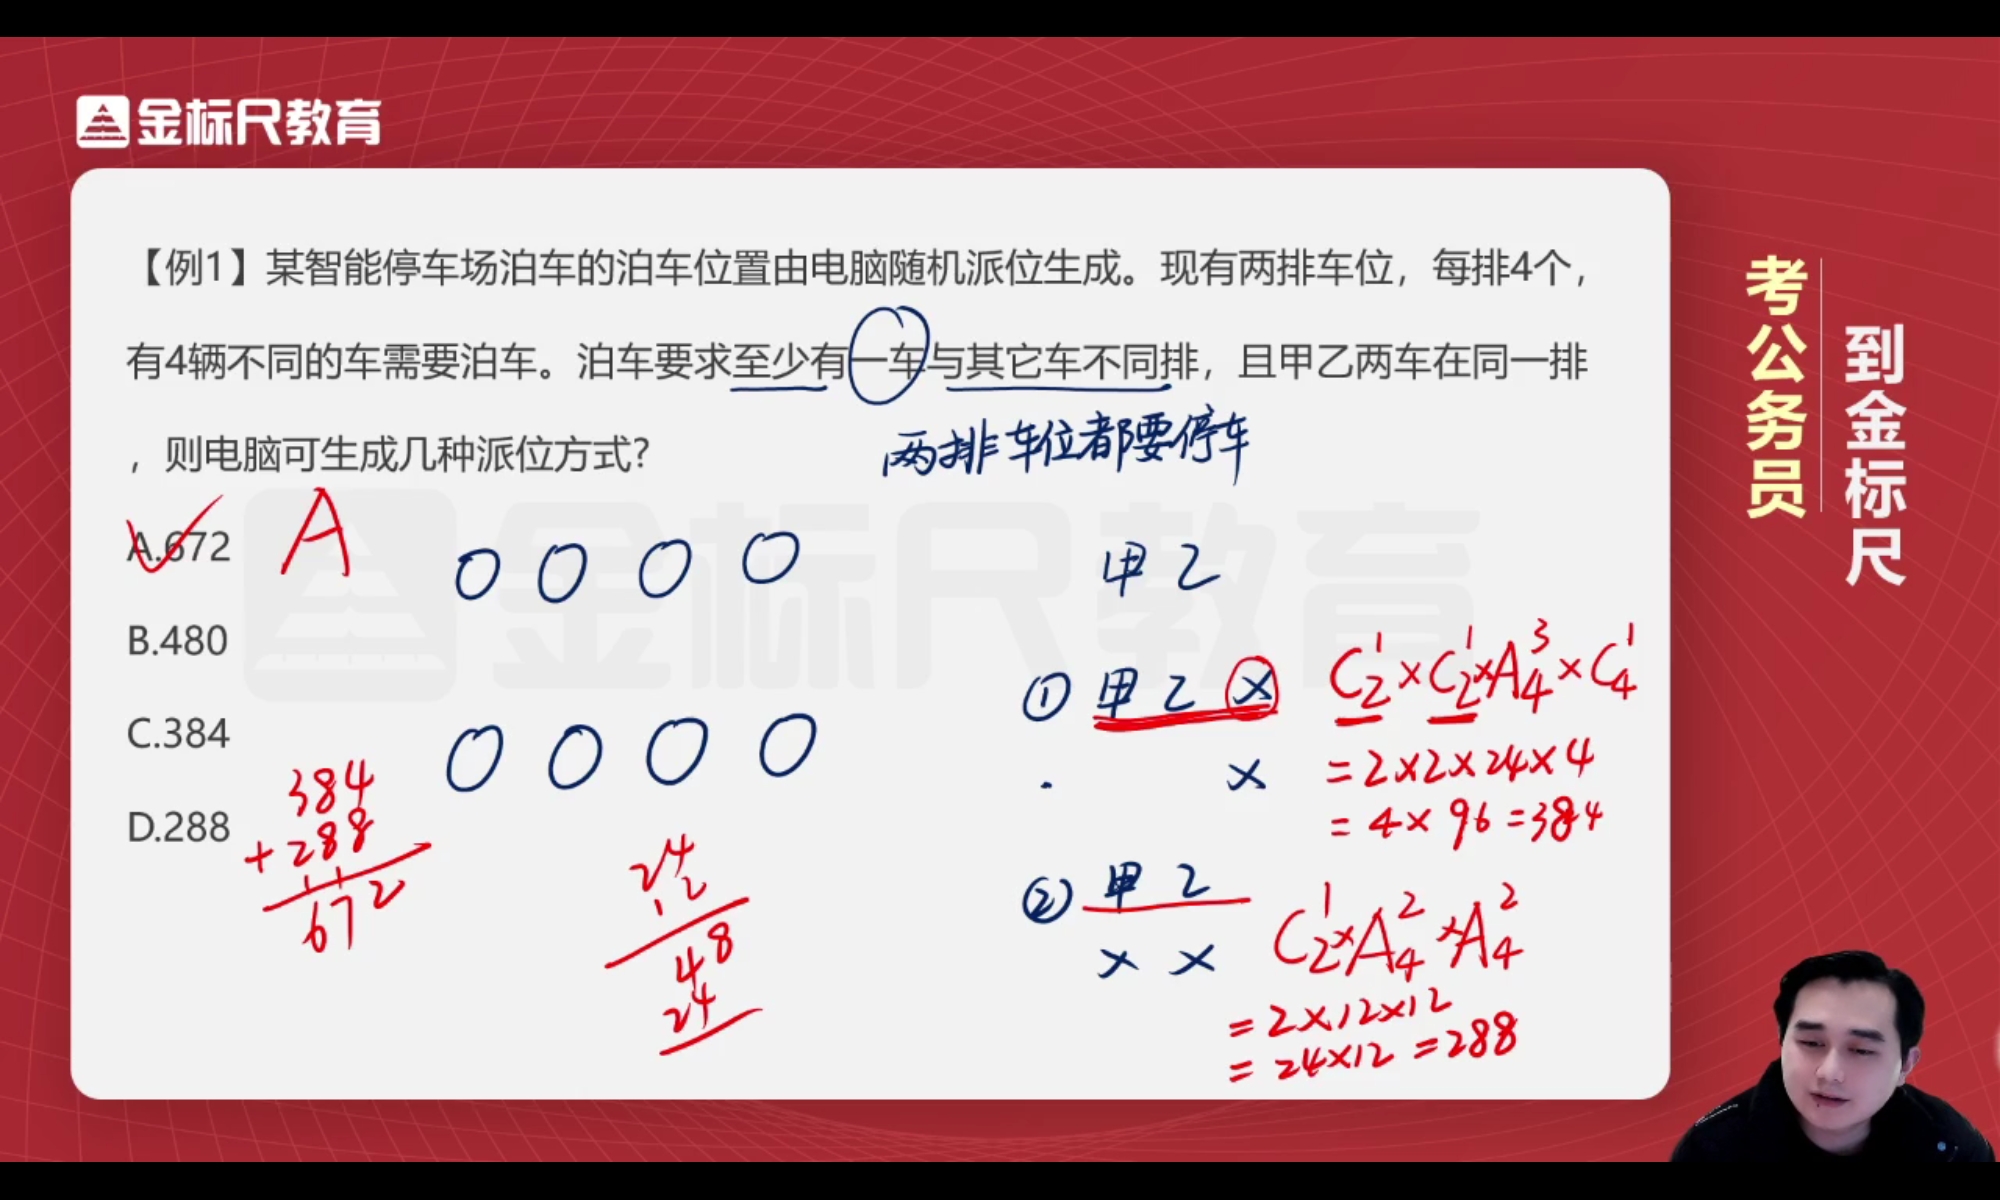 金标尺教育
【例1】某智能停车场泊车的泊车位置由电脑随机派位生成。现有两排车位，每排4个，
有4辆不同的车需要泊车。泊车要求至少有一车与其它车不同排，且甲乙两车在同一排
，则电脑可生成几种派位方式?
两排车位都要停车
A.672
A
B.480
C.384
D.288
甲 乙
① 甲 乙 ×
×
C₂¹×C₂¹×A₄³×C₄¹
=2×2×24×4
=4×96=384
② 甲 乙
× ×
C₂¹×A₄²×A₄²
=2×12×12
=24×12=288
384
+288
672
24
12
48
24
金标尺教育
考公务员
到金标尺